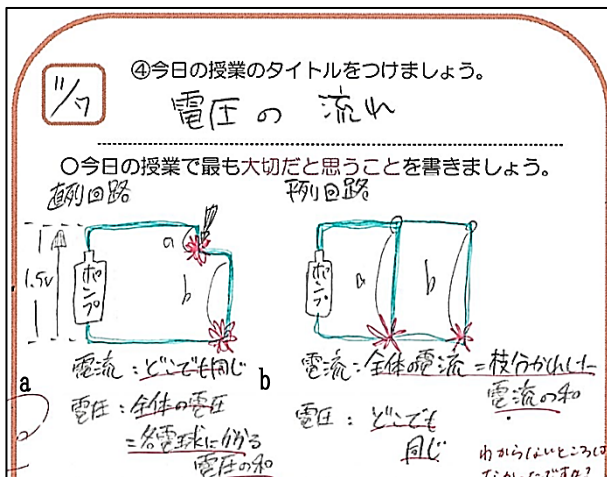 11/7
④今日の授業のタイトルをつけましょう。
電圧の 流れ
○今日の授業で最も大切だと思うことを書きましょう。
直列回路
並列回路
1.5v
ポンプ
a
b
ポンプ
a
b
a
電流：どこでも同じ
電圧：全体の電圧
＝各電球に掛る
電圧の和
b
電流：全体の電流＝枝分かれした
電流の和
電圧：どこでも
同じ
わからないところは
なかったですか？